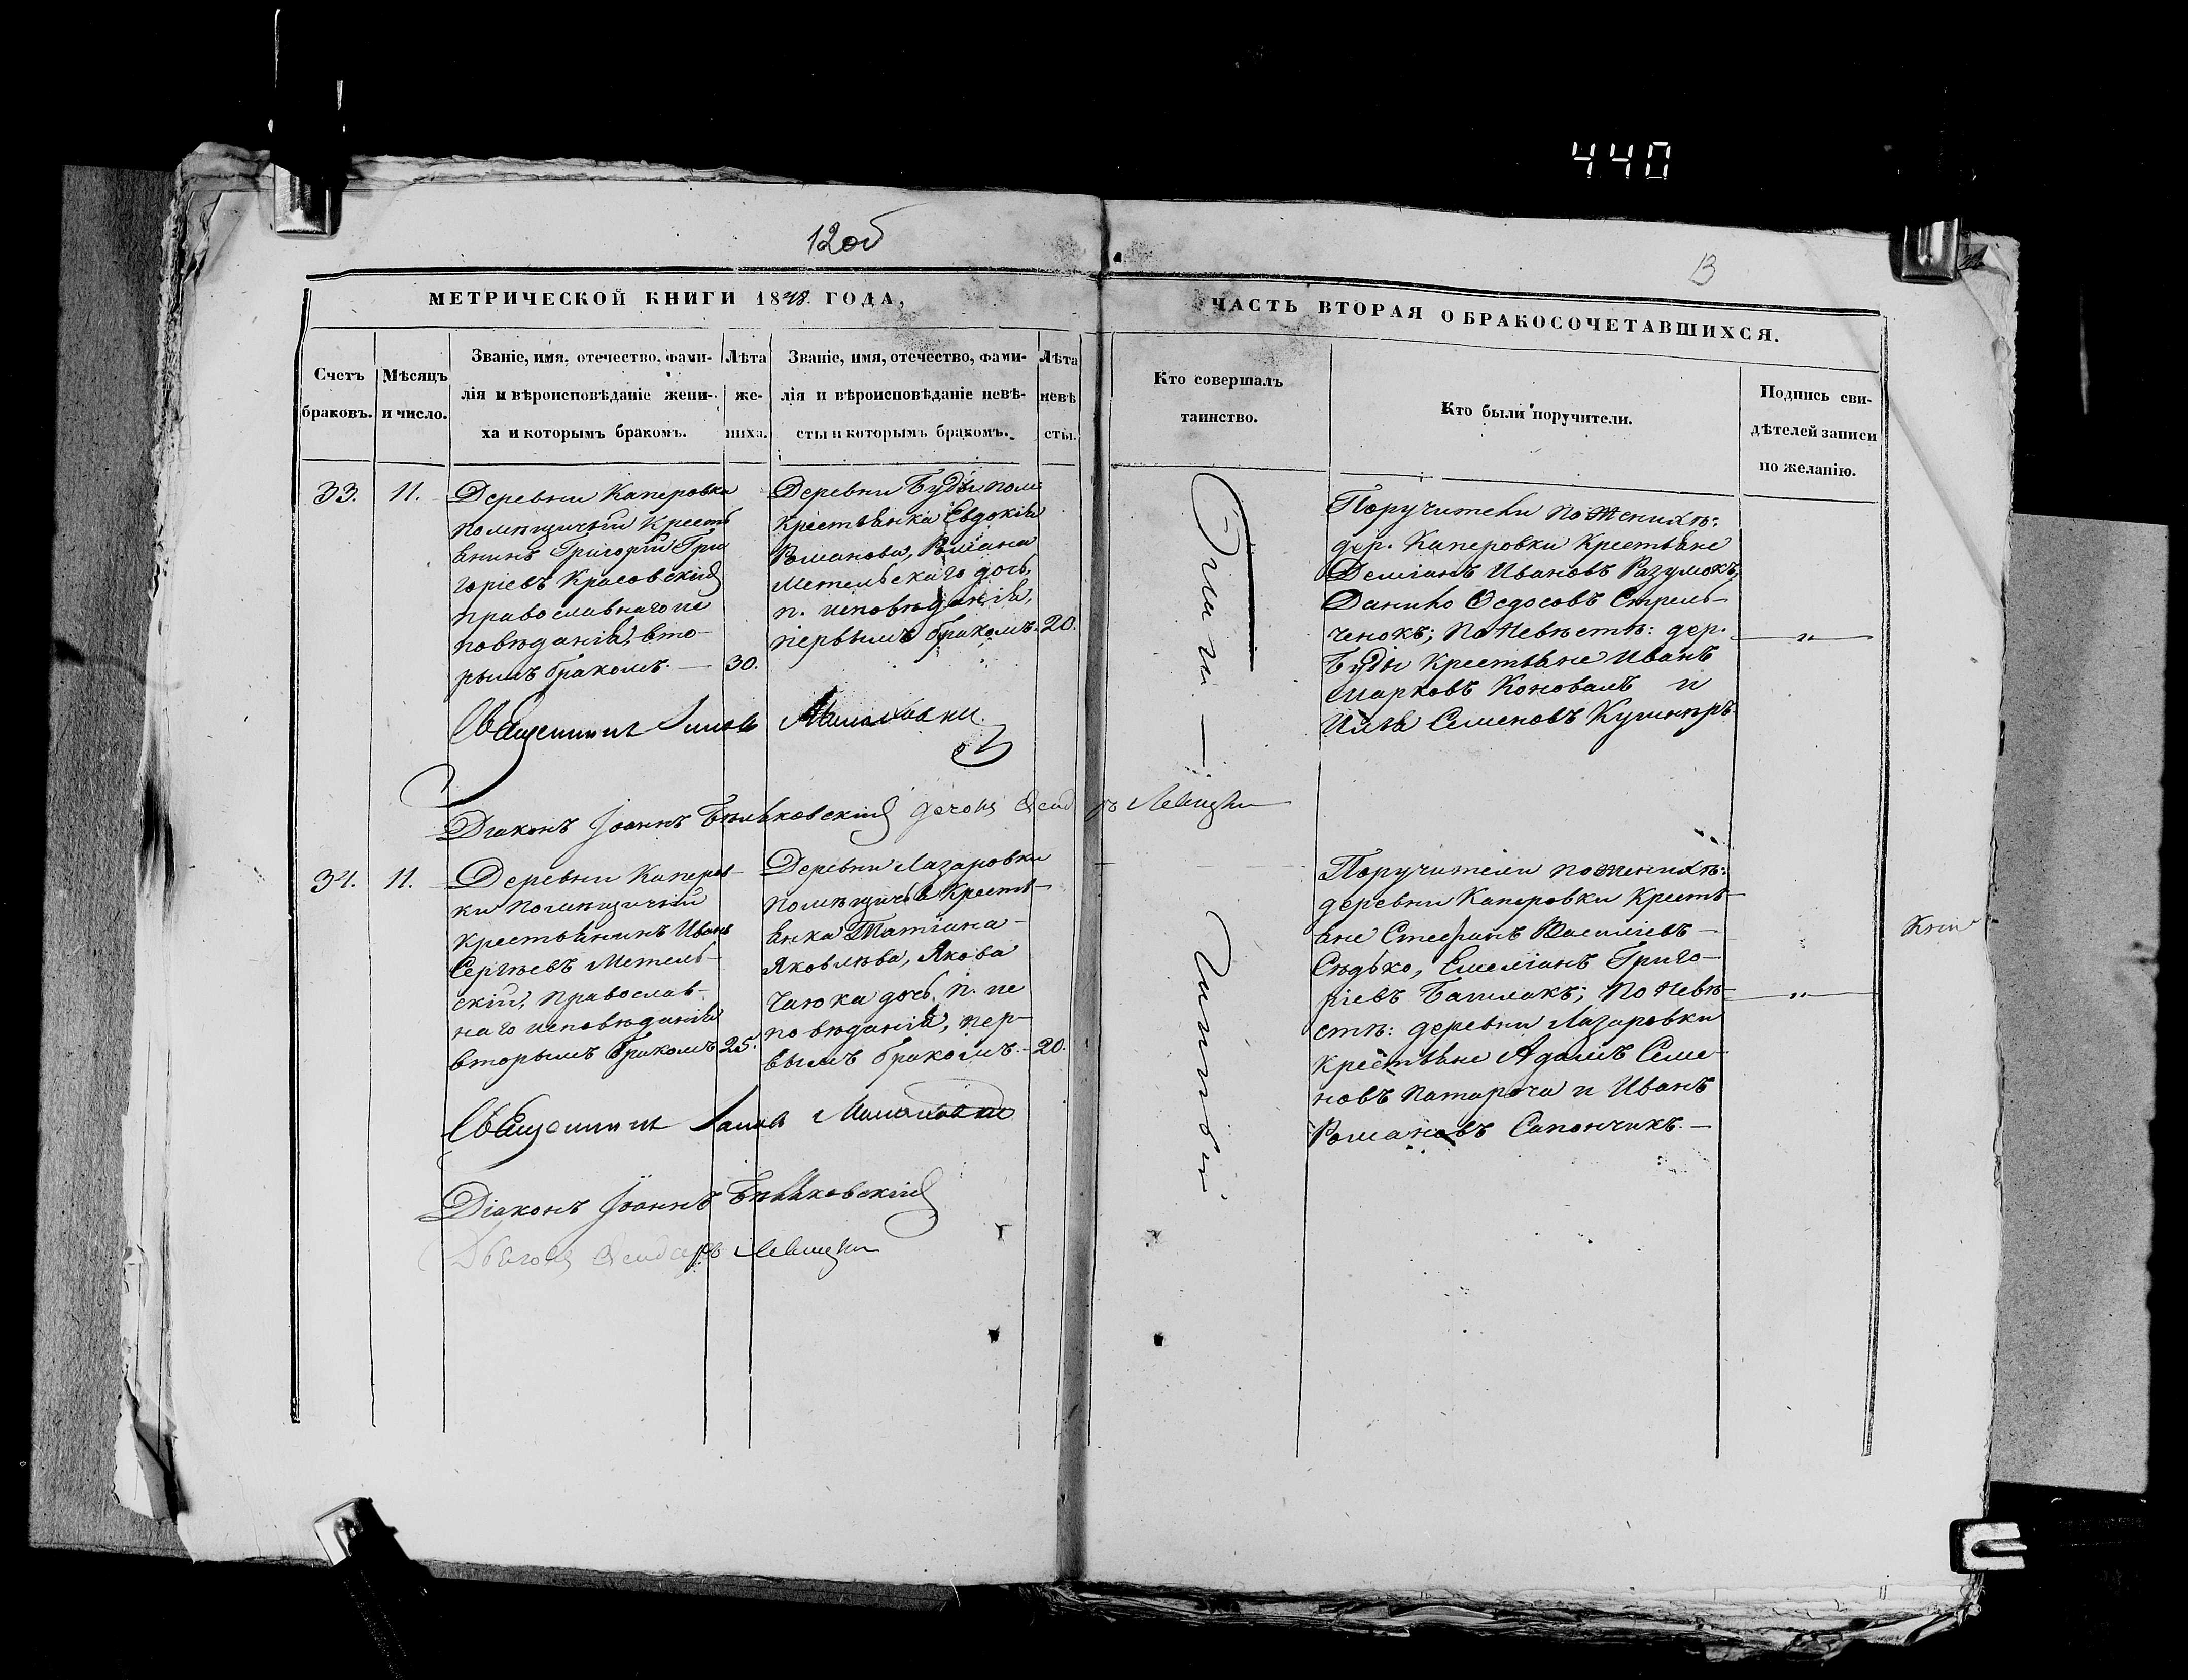 440
12об
13
МЕТРИЧЕСКОЙ КНИГИ 1848. ГОДА,
ЧАСТЬ ВТОРАЯ О БРАКОСОЧЕТАВШИХСЯ.
Счетъ
браковъ.
Мѣсяцъ
и число.
Званіе, имя, отечество, фами-
лія и вѣроисповѣданіе жени-
ха и которымъ бракомъ.
Лѣта
же-
ниха.
Званіе, имя, отечество, фами-
лія и вѣроисповѣданіе невѣ-
сты и которымъ бракомъ.
Лѣта
невѣ
сты.
Кто совершалъ
таинство.
Кто были поручители.
Подпись сви-
дѣтелей записи
по желанію.
33.
11.
Деревни Каперовки
помѣщичій крестъ
янинъ Григорій Гри
горіевъ Красовскій
православнаго ис
повѣданія, вто-
рымъ бракомъ. — 30.
Деревни Буды пом.
крестьянка Евдокія
Романова, Романа
Метельскаго дочь,
п. исповѣданія,
первымъ бракомъ. 20.
Поручители по женихѣ:
дер. Каперовки крестьяне
Деміанъ Ивановъ Разумокъ,
Данило Ѳедосовъ Стрель-
ченокъ; по невѣстѣ: дер.
Буды крестьяне Иванъ
Марковъ Коновалъ и
Илья Семеновъ
Священникъ
Діаконъ Іоаннъ Бѣльковскій Левицкій
34.
11.
Деревни Каперов-
ки помѣщичій
крестьянинъ Иванъ
Сергѣевъ Метель-
скій, православ-
наго исповѣданія
вторымъ бракомъ 25.
Деревни Лазаровки
помѣщичья крестъ-
янка Татіана
Яковлѣва, Якова
Чаюка дочь, п. ис
повѣданія, пер-
вымъ бракомъ. — 20.
Поручители по женихѣ:
деревни Каперовки кресть-
яне Стефанъ Василіевъ
Сѣдько, Емеліанъ Григо-
ріевъ Башлакъ; по невѣ-
стѣ: деревни Лазаровки
крестьяне Адамъ Семе-
новъ Патароча и Иванъ
Романовъ Сапончикъ. —
Священникъ
Діаконъ Іоаннъ Бѣльковскій
Левицкій